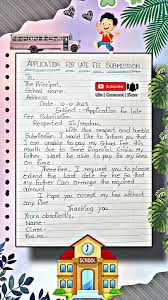 APPLICATION FOR LATE FEE SUBMISSION
To,
The Principal,
School name:-
Address
Date :- 10-10-2023
Subject :- Application for late
Fee Submission.
Respected Sir/Madam,
With due respect and humble
Submission I would like to inform you that
I am unable to pay my School Fee this
month due to Some financial Crisis. My
Father wont be able to pay for my fees
on time.
Therefore, I request you to please
extend the last date for fee so that
my Father can arrange the required
amount.
I hope you accept my fee without
any fine.
Thanking you.
Yours obediently,
Name -
Class -
Roll no. -
SUBSCRIBE
Like | Comment | Share
SCHOOL